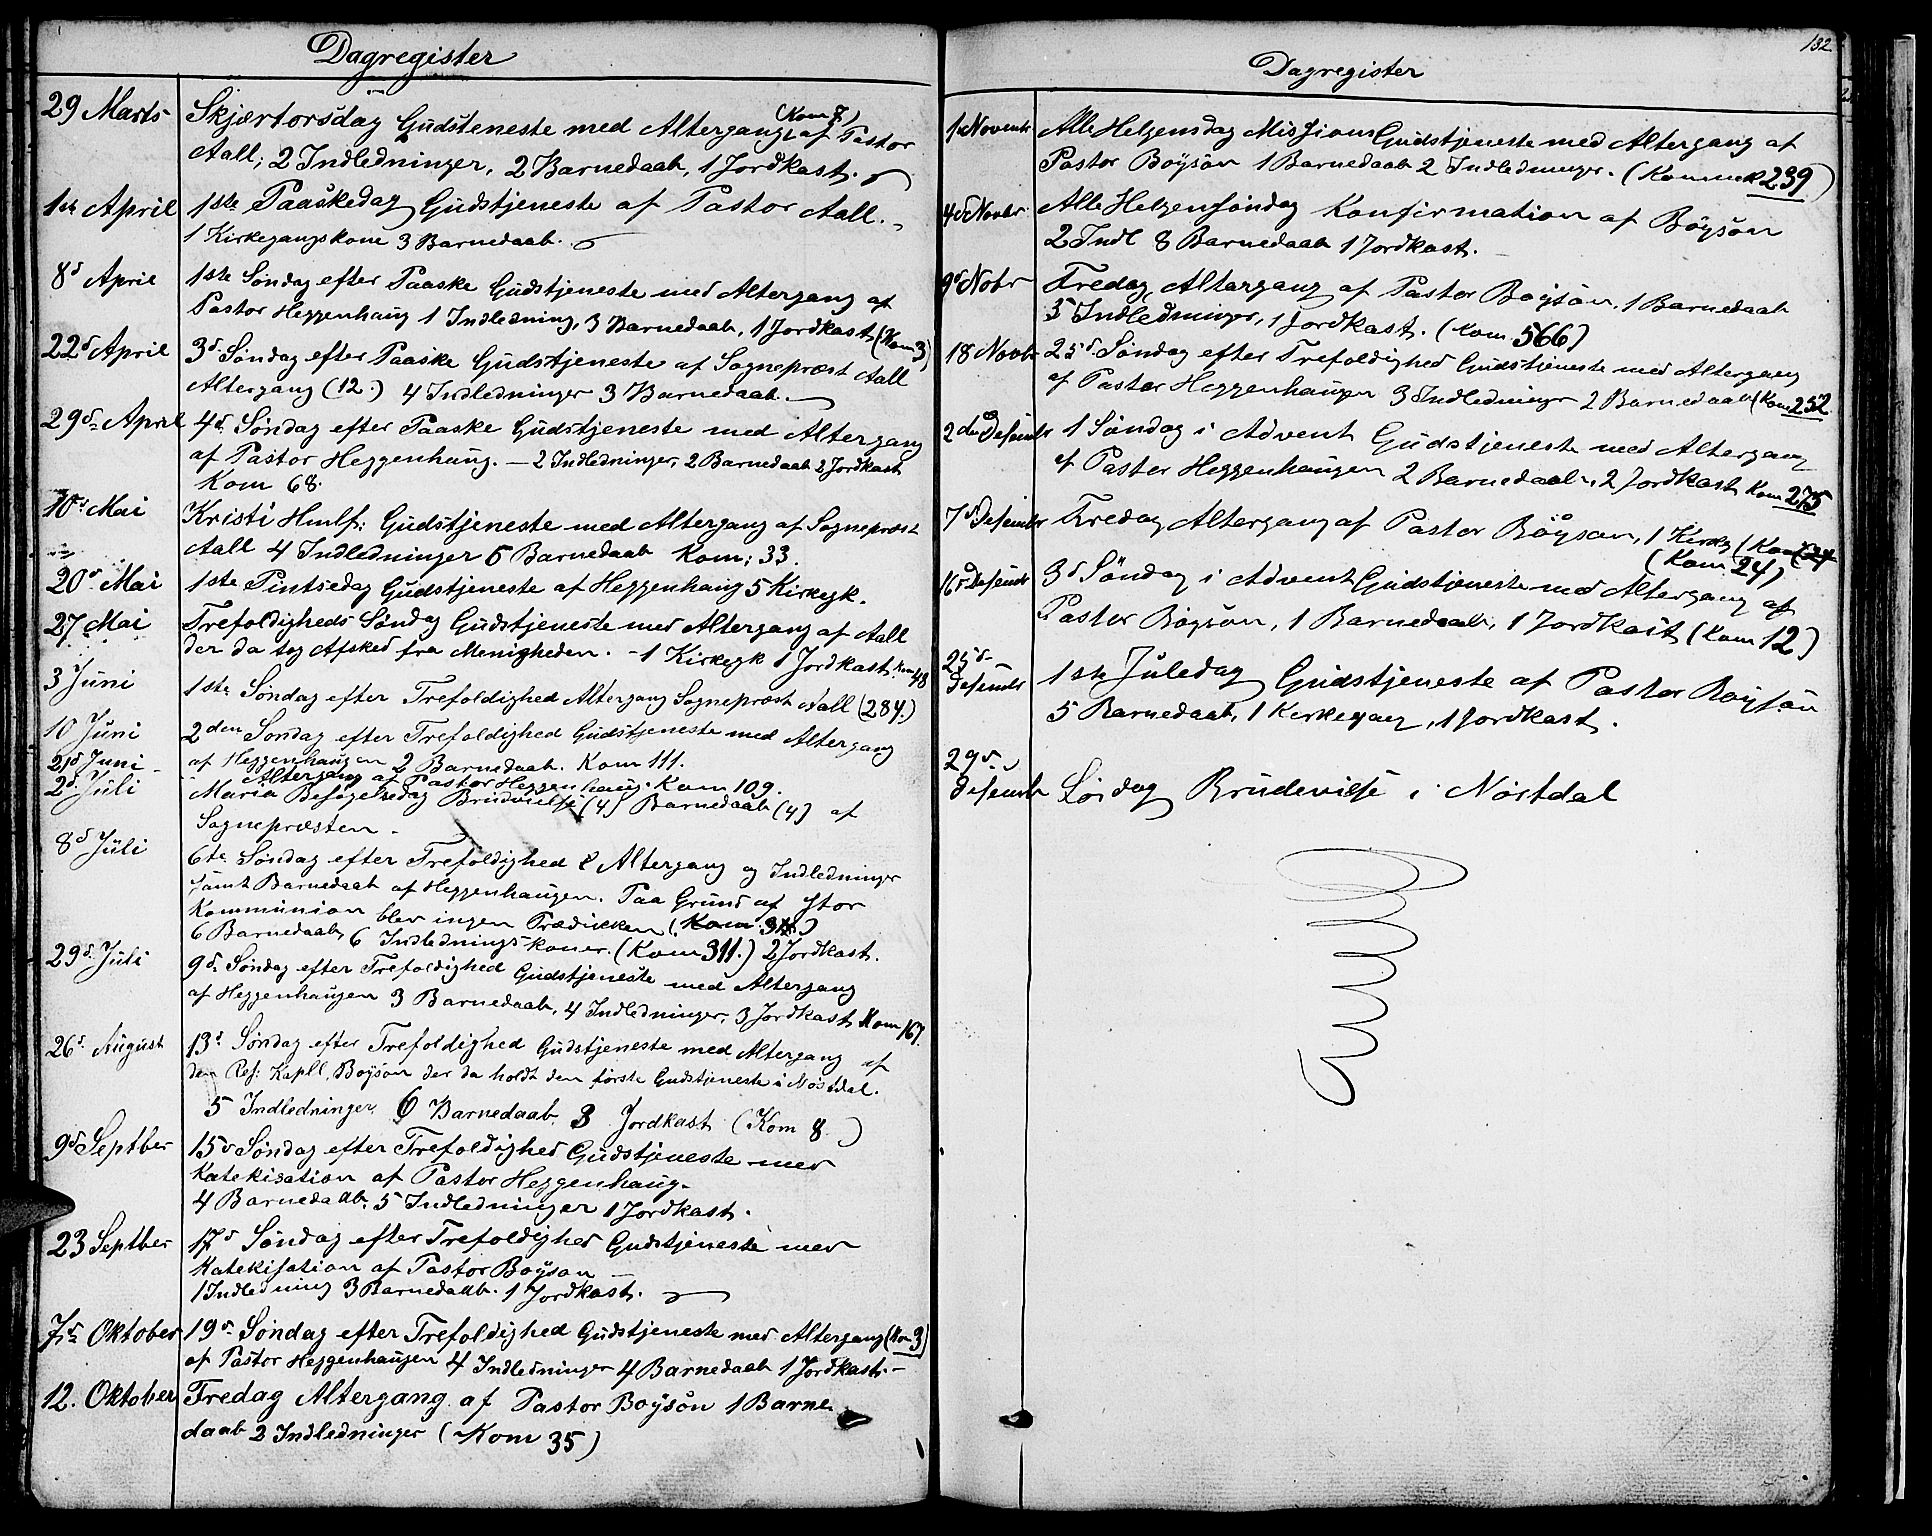 Dagregister
29 Marts Skjærtorsdag Gudsteneste med Altergang (Kom 7) af Pastor
Aall; 2 Indledninger, 2 Barnedaab, 1 Jordkast.
1ste April 1ste Paaskedag Gudstjeneste af Pastor Aall.
1 Kirkegangskone 3 Barnedaab.
8d April 1ste Søndag efter Paaske Gudstjeneste med Altergang af
Pastor Heggenhaug 1 Indledning, 3 Barnedaab, 1 Jordkast (Kom 3)
22d April 3d Søndag efter Paaske Gudstjeneste af Sognepræst Aall
Altergang (12.) 4 Indledninger 3 Barnedaab.
29d April 4d Søndag efter Paaske Gudstjeneste med Altergang
af Pastor Heggenhaug. — 2 Indledninger, 2 Barnedaab 2 Jordkast
Kom 68.
10d Mai Kristi Hmlf: Gudstjeneste med Altergang af Sognepræst
Aall 4 Indledninger 5 Barnedaab Kom: 33.
20d Mai 1ste Pintsedag Gudstjeneste af Heggenhaug 5 Kirkegk.
27 Mai Trefoldigheds Søndag Gudstjeneste med Altergang af Aall
der da tog Afsked fra Menigheden. - 1 Kirkegk 1 Jordkast. Kom 48
3 Juni 1ste Søndag efter Trefoldighed Altergang Sognepræst Aall (284.)
10 Juni 2den Søndag efter Trefoldighed Gudstjeneste med Altergang
af Heggenhaugen 2 Barnedaab. Kom 111.
21d Juni Altergang af Pastor Heggenhaug. Kom 109.
2d Juli Maria Besøgelsedag Brudvielse (4) Barnedaab (4) af
Sognepræsten.
8d Juli 6te Søndag efter Trefoldighed Altergang og Indledninger
samt Barnedaab af Heggenhaugen. Paa Grund af stor
Kommunion blev ingen Prædikken
6 Barnedaab, 6 Indledningskoner. (Kom 311.) 2 Jordkast.
29d Juli 9d Søndag efter Trefoldighed Gudstjeneste med Altergang
af Heggenhaugen 3 Barnedaab, 4 Indledninger, 3 Jordkast Kom 167.
26d August 13d Søndag efter Trefoldighed Gudstjeneste med Altergang af
den Res: Kapll. Boysøn der da holdt den første Gudstjeneste i Nøstdal.
5 Indledninger 6 Barnedaab. 3 Jordkast (Kom 8.)
9d Septber 15d Søndag efter Trefoldighed Gudstjeneste med
Katekisation af Pastor Heggenhaug.
4 Barnedaab. 5 Indledninger 1 Jordkast.
23 Septber 17d Søndag efter Trefoldighed Gudstjeneste med
Katekisation af Pastor Boyson
1 Indledning 3 Barnedaab. 1 Jordkast.
7d Oktober 19d Søndag efter Trefoldighed Gudstjeneste med Altergang (Kom 3)
af Pastor Heggenhaugen 4 Indledninger 4 Barnedaab 1 Jordkast.
12. Oktober Fredag Altergang af Pastor Boysøn 1 Barne
daab 2 Indledninger (Kom 35)
132
Dagregister
1st Novembr Alle Helgensdag Missions Gudstjeneste med Altergang af
Pastor Boysøn 1 Barnedaab 2 Indledninger. (Kommuk 239)
4d Novbr Alle Helgensøndag Konfirmation af Böysøn
2 Indl 8 Barnedaab 1 Jordkast.
9d Nobr Fredag Altergang af Pastor Boysøn, 1 Barnedaab
5 Indledninger, 1 Jordkast. (Kom 566)
18 Novbr 25d Søndag efter Trefoldighed Gudstjeneste med Altergang
af Pastor Heggenhaugen 3 Indledninger 2 Barnedaab (Kom 252
2den Desembr 1 Søndag i Advent Gudstjeneste med Altergang
af Pastor Heggenhaugen 2 Barnedaab, 2 Jordkast Kom 275
7d Desembr Fredag Altergang af Pastor Böyson, 1 Kirkeg (Kom 24
(Kom 24)
16d Desembr 3d Søndag i Advent Gudstjeneste med Altergang af
Pastor Boysøn, 1 Barnedaab, 1 Jordkast (Kom 12)
25d Desembr 1ste Juledag Gudstjeneste af Pastor Boysøn
5 Barnedaab, 1 Kirkegang, 1 Jordkast.
29d Desembr Lørdag Brudevielse i Nøstdal